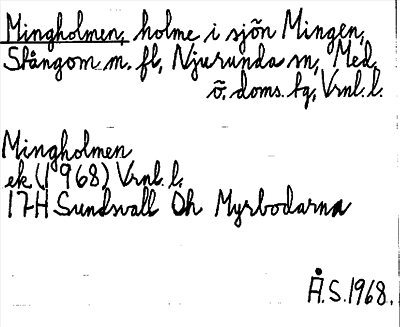 Mingholmen, holme i sjön Mingen,
Slångom m. fl, Njurunda sn, Med.
ö. doms. tg, Vrnl. l.
Mingholmen
ek (1968) Vrnl. l.
17H Sundsvall Öh Myrbodarna
Å.S. 1968.